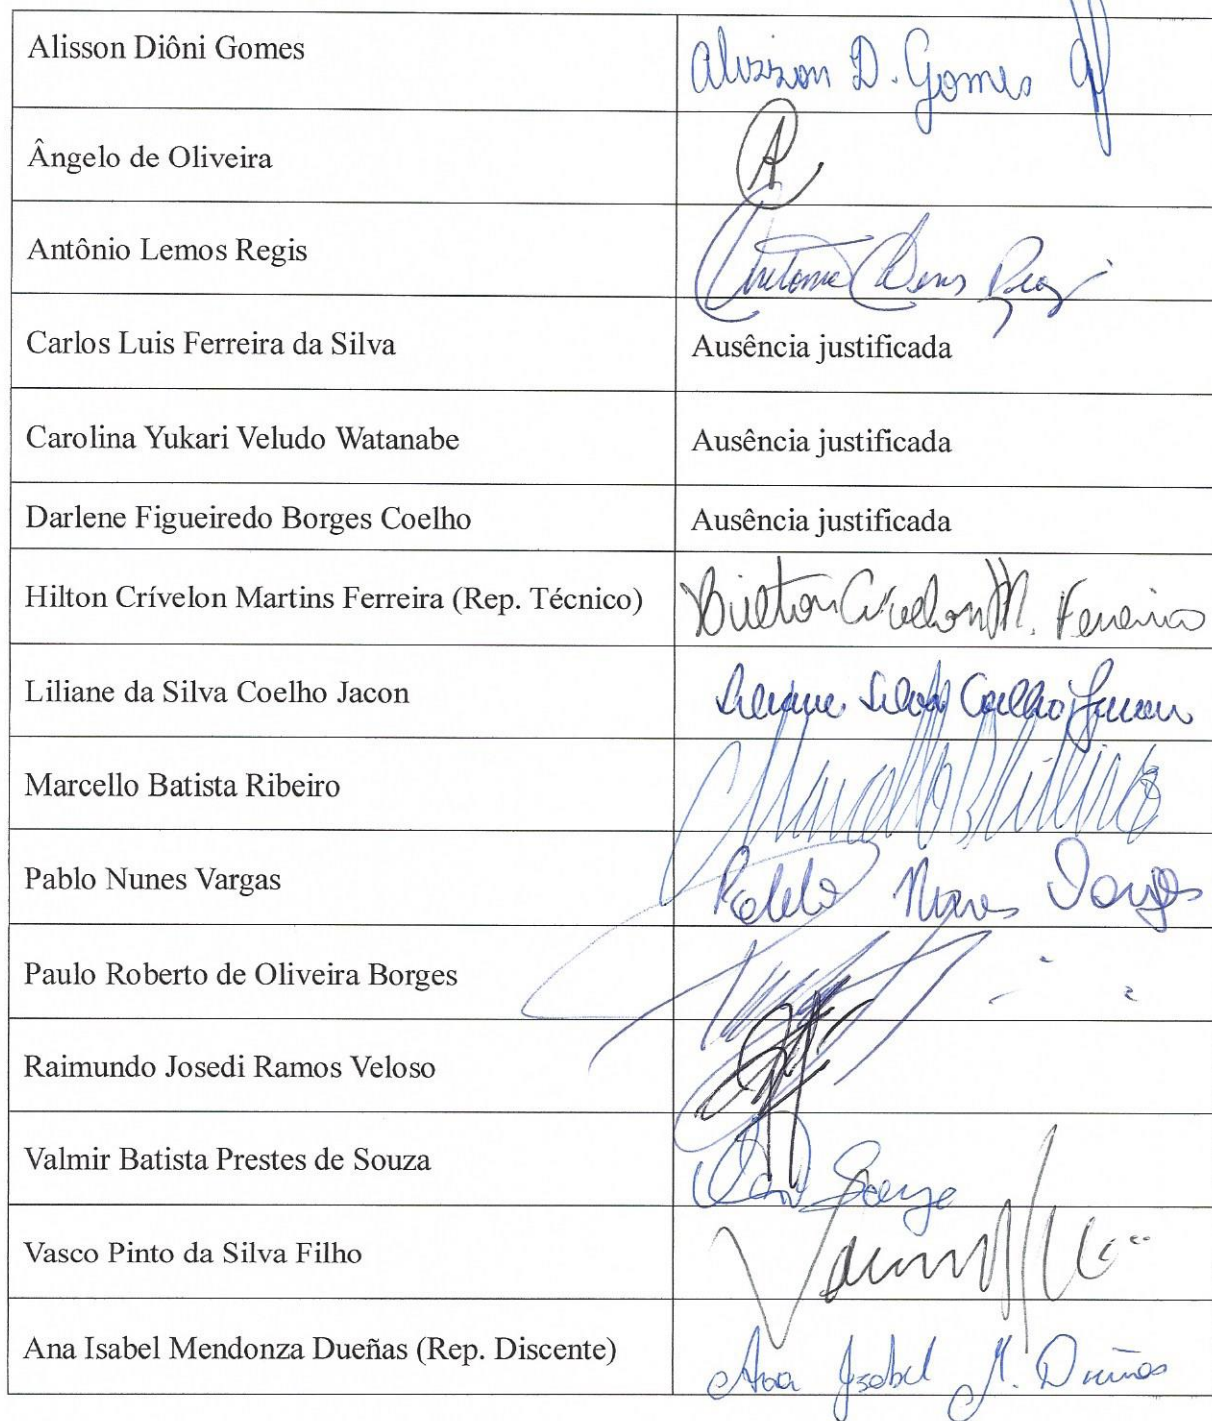 Alisson Diôni Gomes
Alisson D. Gomes
Ângelo de Oliveira
A
Antônio Lemos Regis
Antonio Lemos Regis
Carlos Luis Ferreira da Silva
Ausência justificada
Carolina Yukari Veludo Watanabe
Ausência justificada
Darlene Figueiredo Borges Coelho
Ausência justificada
Hilton Crívelon Martins Ferreira (Rep. Técnico)
Hilton Crivelon M. Ferreira
Liliane da Silva Coelho Jacon
Liliane Silva Coelho Jacon
Marcello Batista Ribeiro
Marcello B Ribeiro
Pablo Nunes Vargas
Pablo Nunes Vargas
Paulo Roberto de Oliveira Borges
Raimundo Josedi Ramos Veloso
Valmir Batista Prestes de Souza
Vasco Pinto da Silva Filho
Ana Isabel Mendonza Dueñas (Rep. Discente)
Ana Isabel M. Dueñas